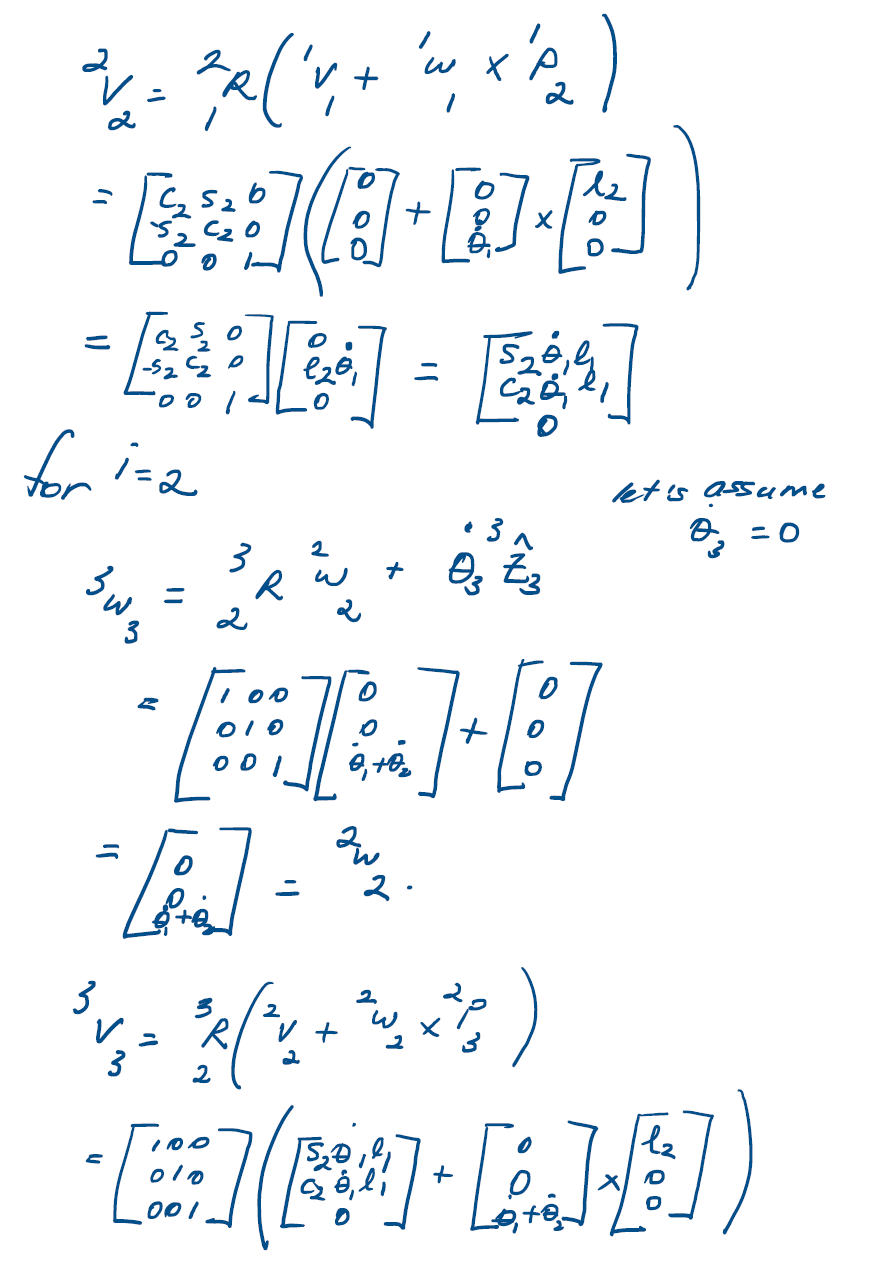 ²V₂ = ²₁R ( ¹V₁ + ¹w₁ × ¹P₂ )
= [c₂ s₂ 0; -s₂ c₂ 0; 0 0 1] ( [0; 0; 0] + [0; 0; θ̇₁] × [l₂; 0; 0] )
= [c₂ s₂ 0; -s₂ c₂ 0; 0 0 1] [0; l₂θ̇₁; 0] = [s₂ θ̇₁ l₁; c₂ θ̇₁ l₁; 0]
for i=2
let's assume
θ̇₃ = 0
³w₃ = ³₂R ²w₂ + θ̇₃ ³Ẑ₃
= [1 0 0; 0 1 0; 0 0 1] [0; 0; θ̇₁+θ̇₂] + [0; 0; 0]
= [0; 0; θ̇₁+θ̇₂] = ²w₂ .
³V₃ = ³₂R ( ²V₂ + ²w₂ × ²P₃ )
= [1 0 0; 0 1 0; 0 0 1] ( [s₂ θ̇₁ l₁; c₂ θ̇₁ l₁; 0] + [0; 0; θ̇₁+θ̇₂] × [l₂; 0; 0] )